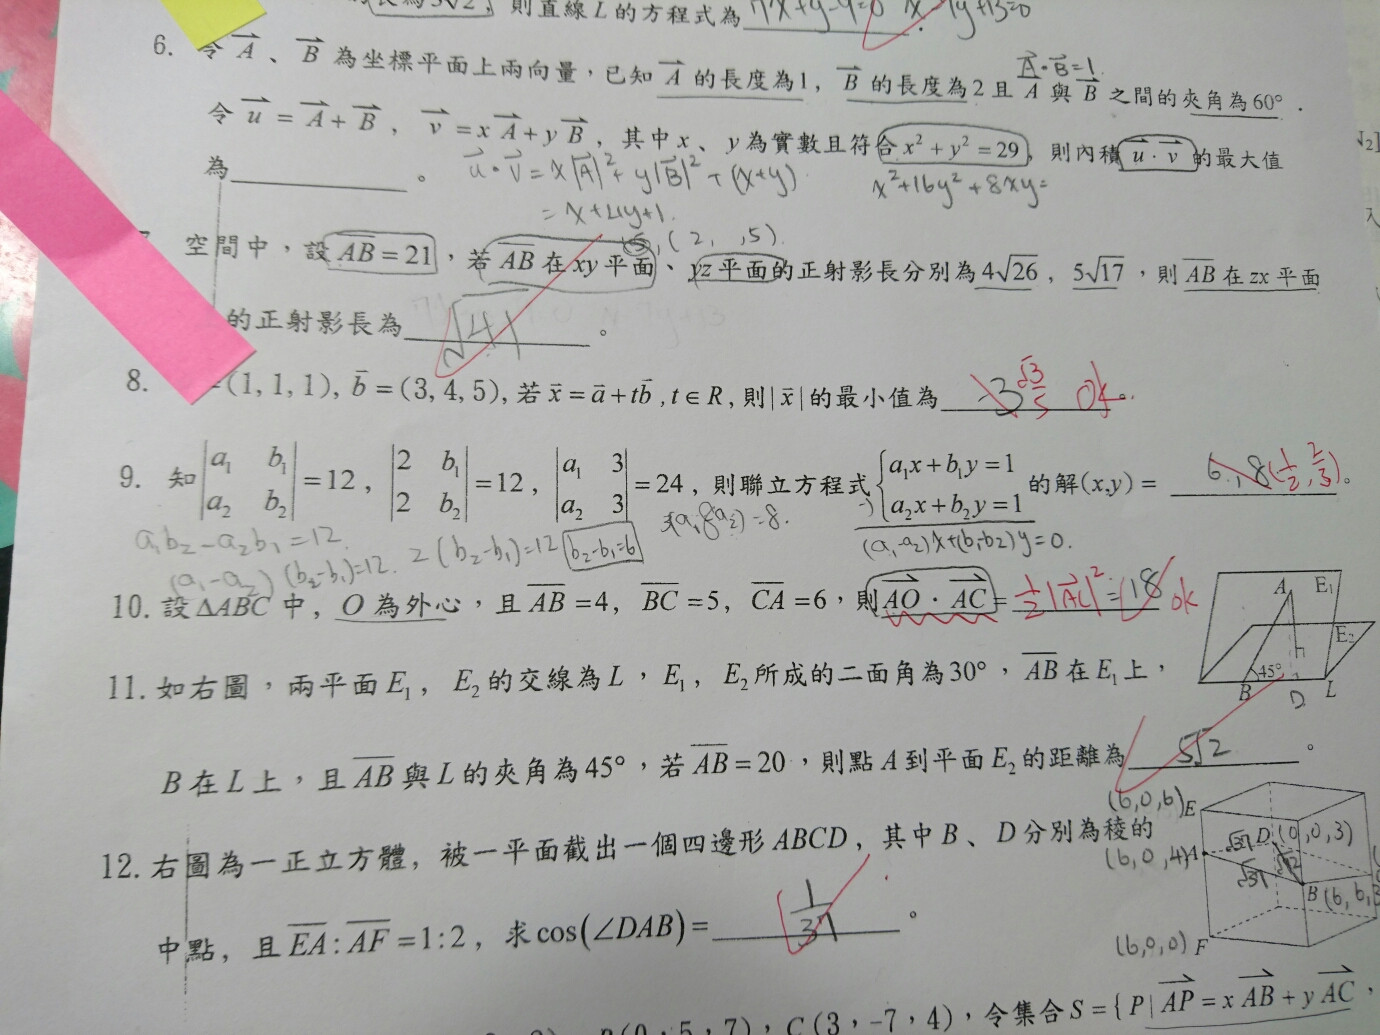 則直線L的方程式為 7x+y-9=0 x-7y+13=0
6. 令 A、B 為坐標平面上兩向量,已知 A 的長度為1, B 的長度為2且 A 與 B 之間的夾角為60°.
A·B=1
令 u = A + B, v = x A + y B, 其中 x、y 為實數且符合 x² + y² = 29, 則內積 u · v 的最大值
為 。
u·v = x|A|²+ y|B|² + (x+y)
x²+16y²+8xy=
= x+4y+1.
(2, ,5).
空間中,設 AB = 21,若 AB 在 xy 平面、yz 平面的正射影長分別為 4√26, 5√17,則 AB 在 zx 平面
的正射影長為 √41 。
8. =(1, 1, 1), b = (3, 4, 5), 若 x = a + tb, t ∈ R, 則 | x | 的最小值為 √3/5 ok。
9. 知 |a₁ b₁ a₂ b₂| = 12, |2 b₁ 2 b₂| = 12, |a₁ 3 a₂ 3| = 24, 則聯立方程式 {a₁x + b₁y = 1 a₂x + b₂y = 1 的解(x,y) = 6, 8 (1/2, 2/3)。
a₁b₂-a₂b₁=12.
2(b₂-b₁)=12 b₂-b₁=6
(a₁-a₂)x+(b₁-b₂)y=0.
(a₁-a₂)(b₂-b₁)=12.
10. 設 ΔABC 中, O 為外心,且 AB = 4, BC = 5, CA = 6,則 AO · AC = 1/2|AC|² = 18 ok
A E₁
E₂
45°
B D L
11. 如右圖,兩平面 E₁, E₂ 的交線為 L,E₁, E₂ 所成的二面角為30°,AB 在 E₁ 上,
B 在 L 上,且 AB 與 L 的夾角為45°,若 AB = 20,則點 A 到平面 E₂ 的距離為 5√2 。
(6,0,6) E
12. 右圖為一正立方體, 被一平面截出一個四邊形 ABCD, 其中 B、D 分別為稜的
D (0,0,3)
(6,0,4) A
√37
√37
B (6,6,3
中點, 且 EA : AF = 1 : 2, 求 cos(∠DAB) = 1/37 。
(6,0,0) F
(0,5,7), C(3,-7,4),令集合 S = { P | AP = x AB + y AC,